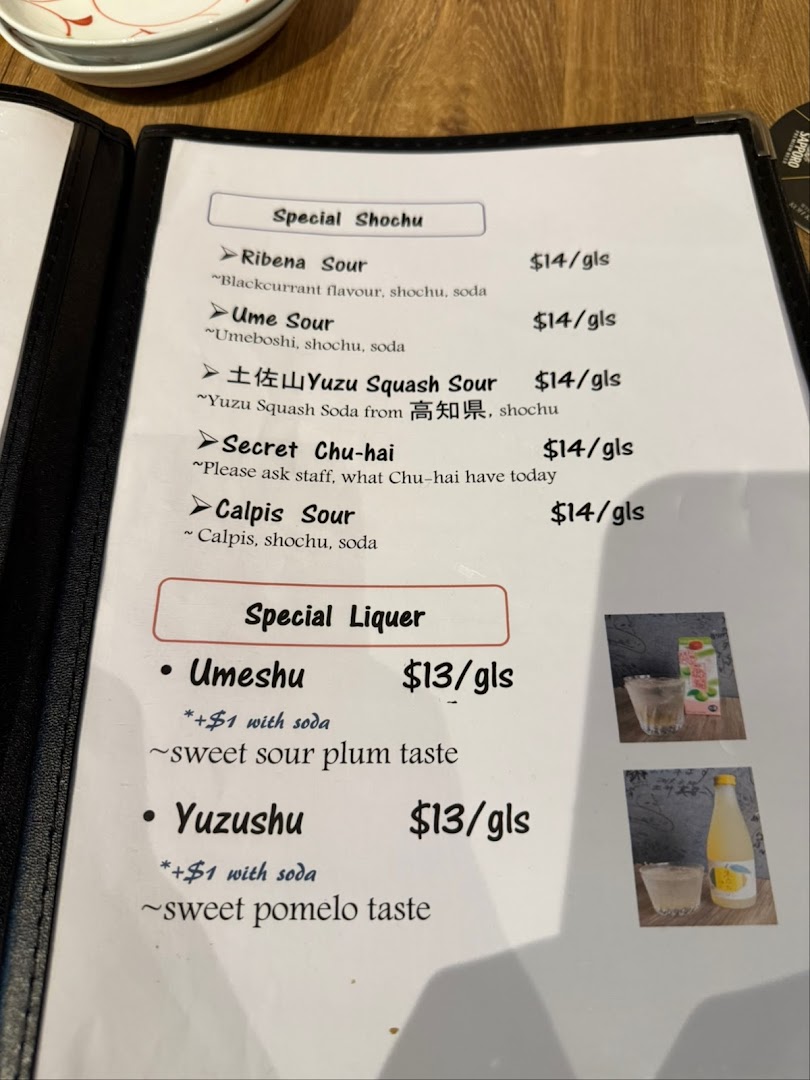 SAPPORO
Special Shochu
➢Ribena Sour $14/gls
~Blackcurrant flavour, shochu, soda
➢Ume Sour $14/gls
~Umeboshi, shochu, soda
➢土佐山Yuzu Squash Sour $14/gls
~Yuzu Squash Soda from 高知県, shochu
➢Secret Chu-hai $14/gls
~Please ask staff, what Chu-hai have today
➢Calpis Sour $14/gls
~ Calpis, shochu, soda
Special Liquer
• Umeshu $13/gls
*+$1 with soda
~sweet sour plum taste
• Yuzushu $13/gls
*+$1 with soda
~sweet pomelo taste